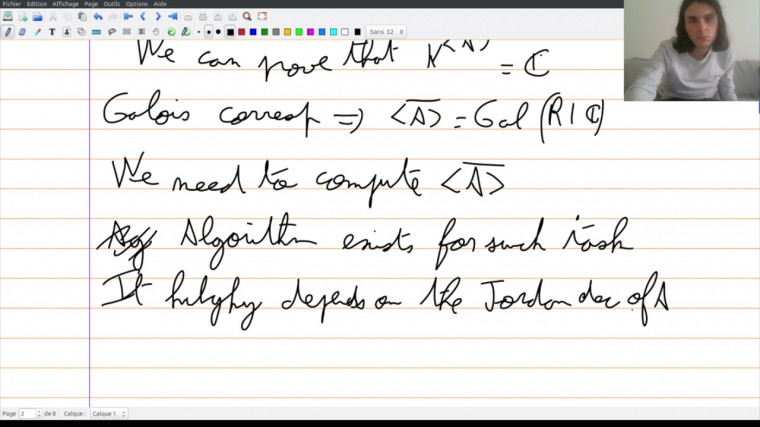 Fichier Edition Affichage Page Outils Options Aide
Sans 12
We can prove that K^<A> = ℂ
Galois corresp ⇒ <A̅> = Gal (R | ℂ)
We need to compute <A̅>
Algorithm exists for such task
It hilghy depends on the Jordan dec of A
Page 2 de 8 Calque : Calque 1